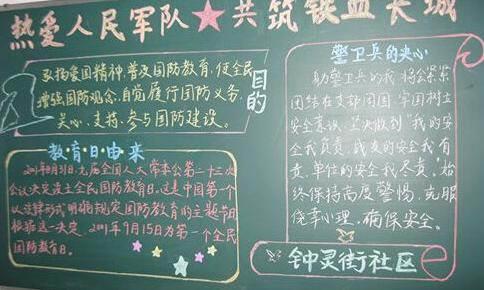 热爱人民军队★共筑铁血长城
弘扬爱国精神,普及国防教育,促全民
增强国防观念,自觉履行国防义务,
关心、支持、参与国防建设。
目的
教·育·日·由·来
2001年8月31日,九届全国人大常委会第二十三次
会议决定设立全民国防教育日。这是中国第一个
以法律形式明确规定国防教育的主题节日
根据这一决定,2001年9月15日为第一个全民
国防教育日。
警卫兵的决心
警卫兵的我,将会紧紧
团结在支部周围,牢固树立
安全意识,坚决做到“我的安
全我负责,战友的安全我有
责,单位的安全我尽责。”始
终保持高度警惕,克服
侥幸心理,确保安全。
钟灵街社区